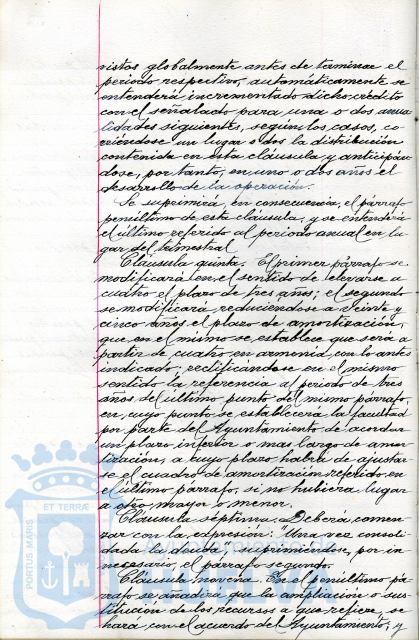 vistos globalmente antes de terminar el
periodo respectivo, automáticamente se
entenderá incrementado dicho crédito
con el señalado para una o dos anua
lidades siguientes, según los casos, co
rriéndose un lugar o dos la distribución
contenida en esta cláusula y anticipán
dose, por tanto, en uno o dos años el
desarrollo de la operación.
Se suprimirá, en consecuencia, el párrafo
penúltimo de esta cláusula, y se entenderá
el último referido al periodo anual en lu
gar del trimestral
Cláusula quinta. El primer párrafo se
modificará en el sentido de elevarse a
cuatro el plazo de tres años; el segundo
se modificará reduciéndose a veinte y
cinco años el plazo de amortización,
que en el mismo se establece que será a
partir de cuatro en armonía con lo antes
indicado, rectificándose en el mismo
sentido la referencia al periodo de tres
años del último punto del mismo párrafo,
en cuyo punto se establecerá la facultad
por parte del Ayuntamiento de acordar
un plazo inferior o mas largo de amor
tización, a cuyo plazo habrá de ajustar
se el cuadro de amortización referido en
el último párrafo, si no hubiera lugar
a otro mayor o menor.
Cláusula séptima. Deberá comen
zar con la expresión "Una vez consoli
dada la deuda" suprimiéndose, por in
necesario, el párrafo segundo.
Cláusula novena. En el penúltimo pá
rrafo se añadirá que la ampliación o sus
titución de los recursos a que refiere, se
hará con el acuerdo del Ayuntamiento; y
PORTUS MARIS
ET TERRÆ
Ayuntamiento de